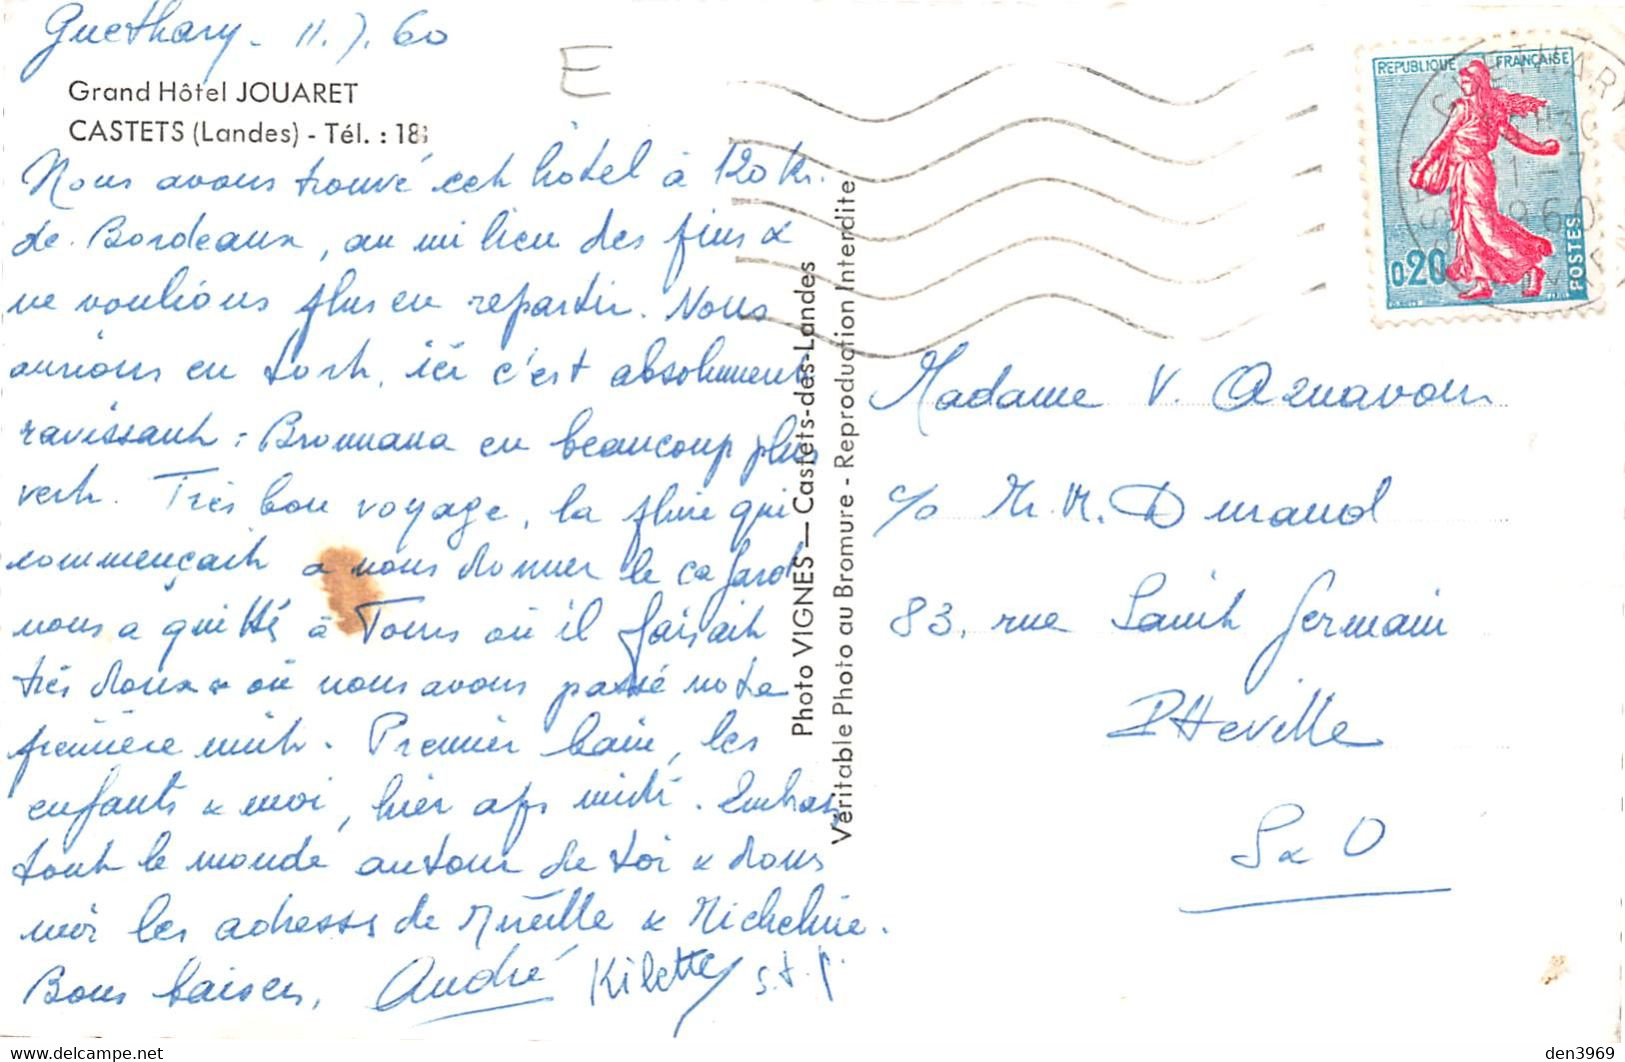 Guethary - 11.7.60
Grand Hôtel JOUARET
CASTETS (Landes) - Tél. : 18
E
Nous avons trouvé cet hôtel à 120 km.
de Bordeaux, au milieu des pins &
ne voulions plus en repartir. Nous
aurions eu tort, ici c'est absolument
ravissant : Brounana en beaucoup plus
vert. Très bon voyage, la pluie qui
commençait à nous donner le cafard
nous a quittés à Tours où il faisait
très doux & où nous avons passé notre
première nuit. Premier bain, les
enfants & moi, hier aps midi. Embrass
tout le monde autour de toi & donne
moi les adresses de Mireille & Micheline.
Bons baisers, André Kilette s.t.p.
Photo VIGNES — Castets-des-Landes
Véritable Photo au Bromure - Reproduction Interdite
REPUBLIQUE FRANÇAISE
0,20
POSTES
GUETHARY
1960
Madame V. Aznavour
c/o Mr. M. Durand
83, rue Saint Germain
Itteville
S & O
den3969